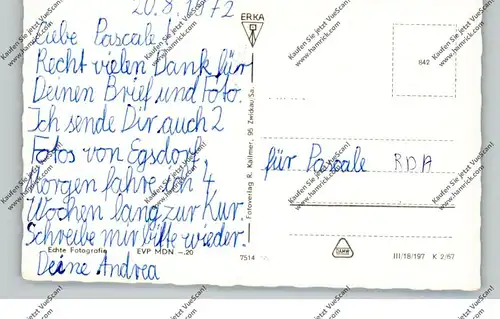 20.8.1972
Liebe Pascale
Recht vielen Dank für
Deinen Brief und Foto.
Ich sende Dir auch 2
Fotos von Egsdorf,
Morgen fahre ich 4
Wochen lang zur Kur.
Schreibe mir bitte wieder!
Deine Andrea
Echte Fotografie
EVP MDN –.20
ERKA
Fotoverlag R. Kallmer, 95 Zwickau-Sa.
7514
842
für Pascale RDA
III/18/197 K 2/67
Kaufen Sie jetzt VueScan!
www.hamrick.com